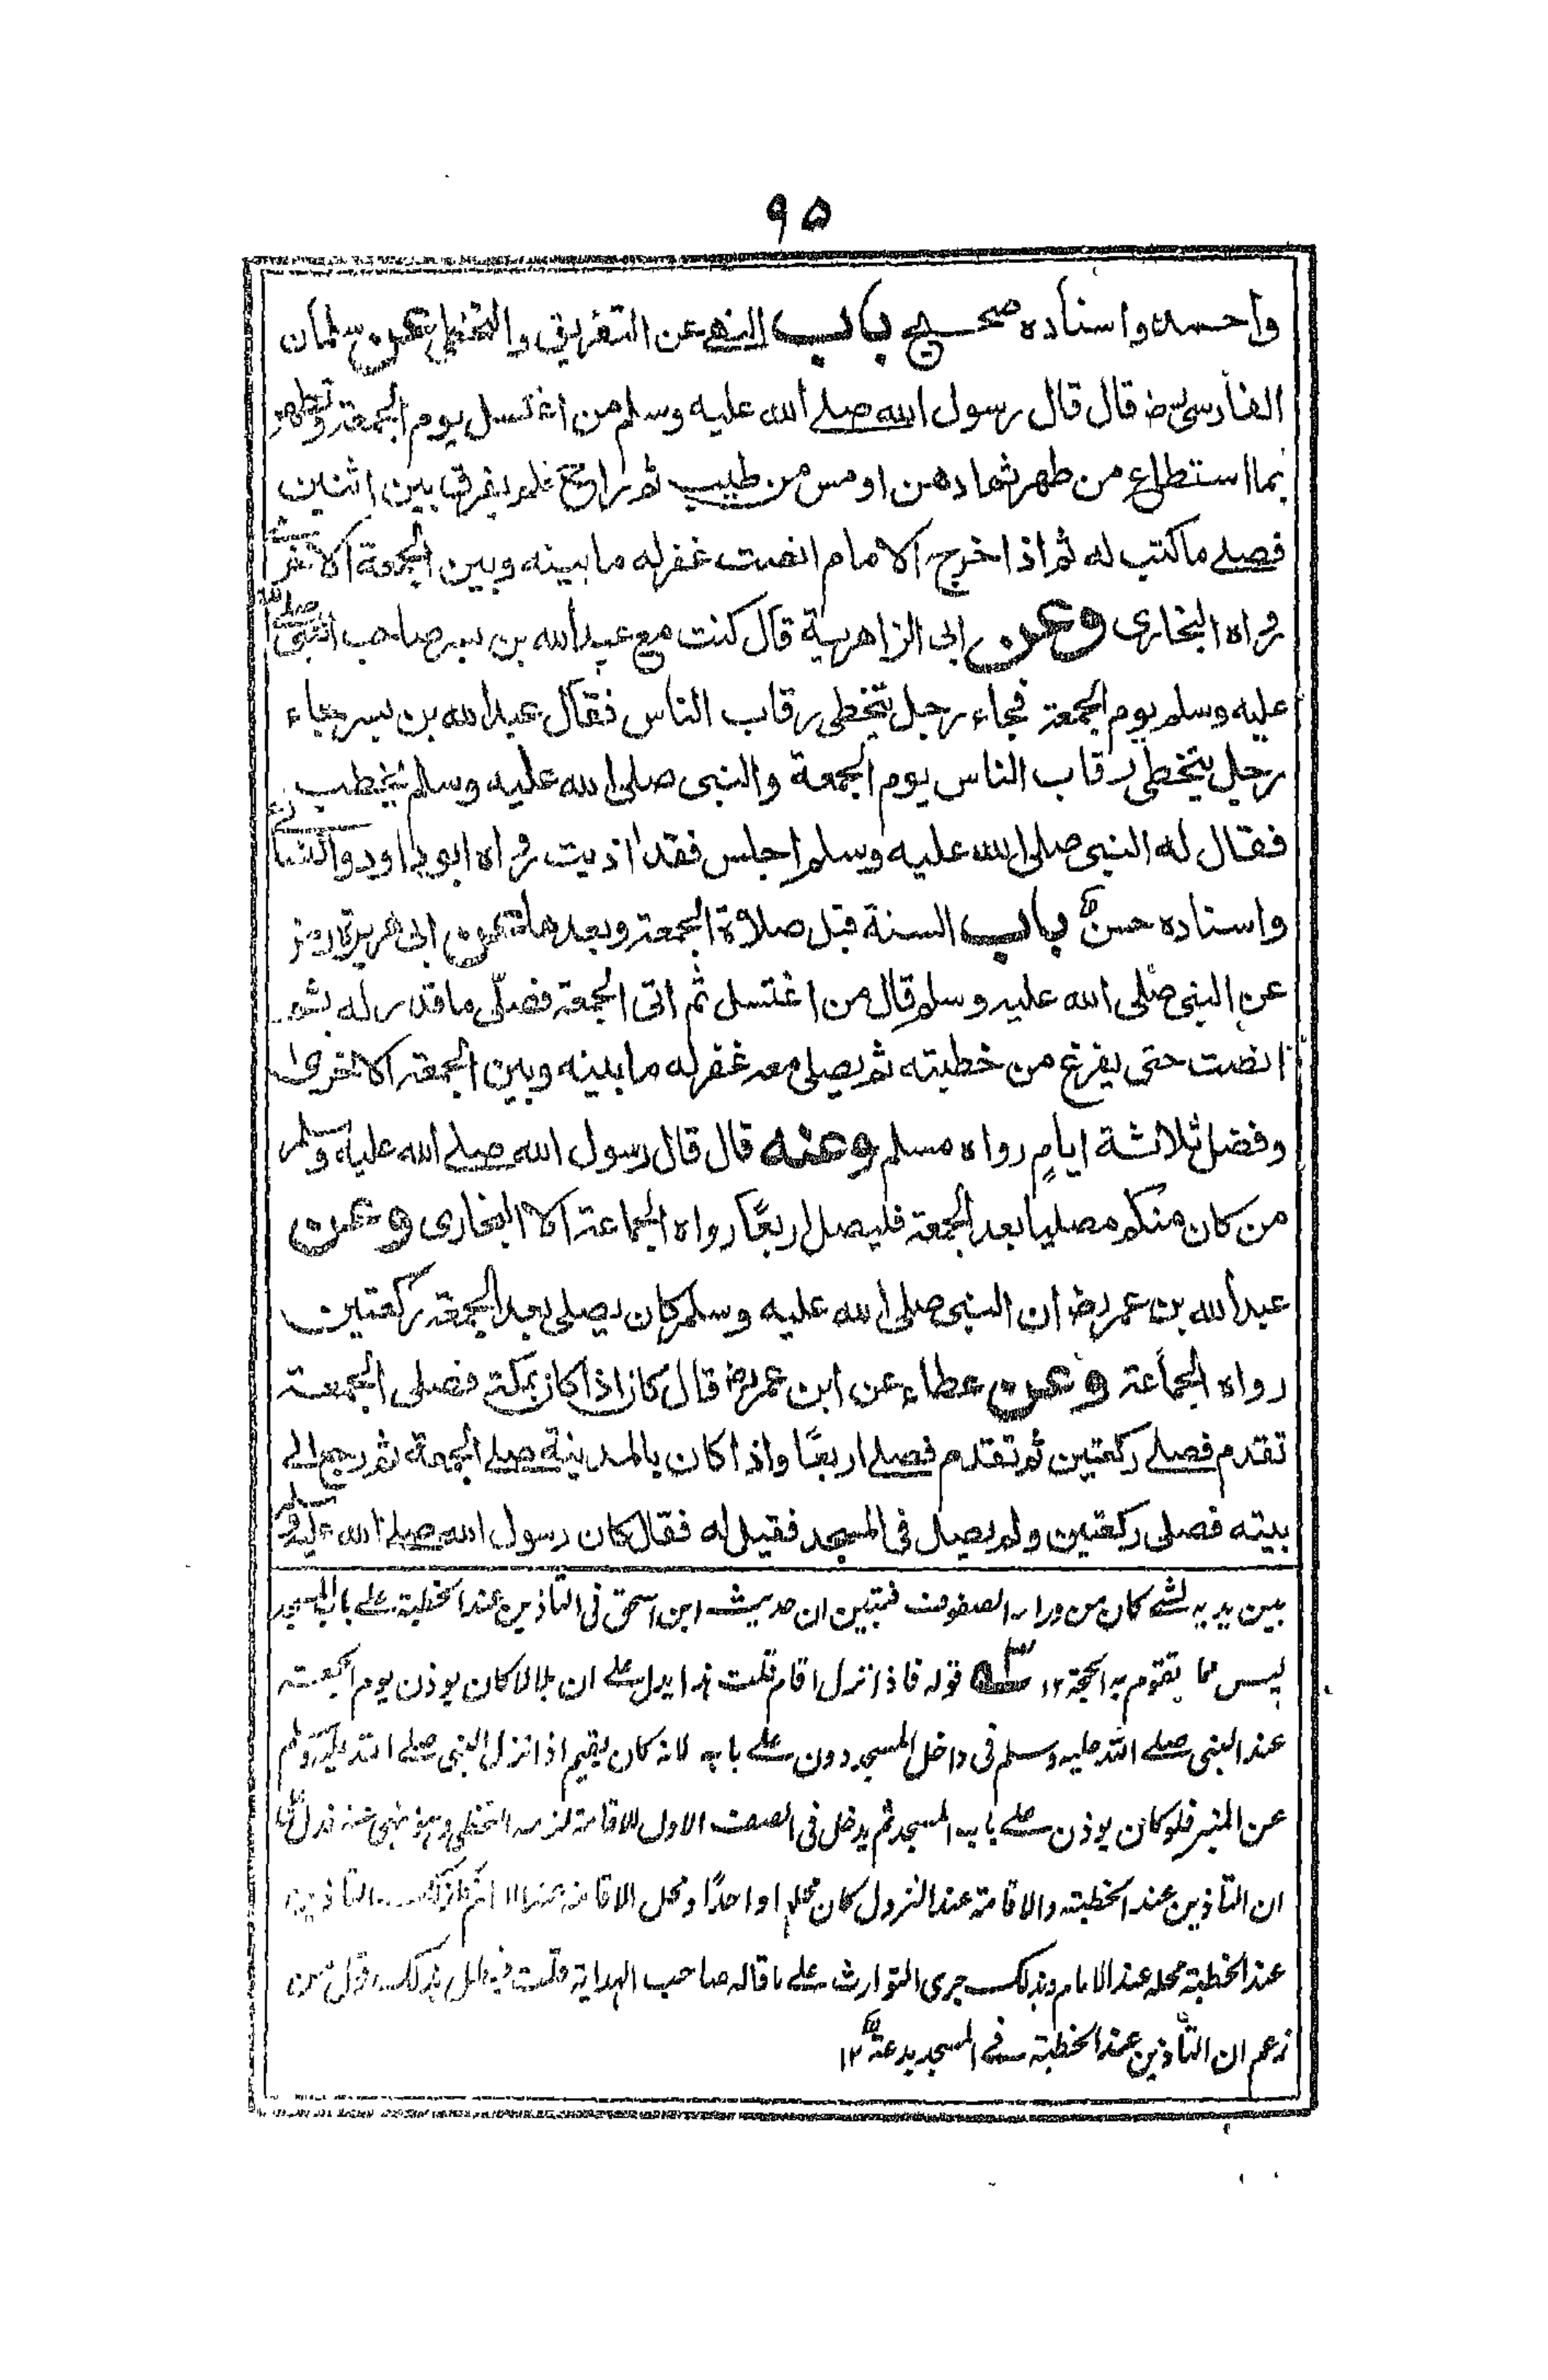 ٩٥
واحمد واسناده صحيح باب النهى عن التفريق والتخطى عن سلمان
الفارسى رض قال قال رسول الله صلى الله عليه وسلم من اغتسل يوم الجمعة وتطهر
بما استطاع من طهر ثم ادهن او مس من طيب ثم راح فلم يفرق بين اثنين
فصلى ما كتب له ثم اذا خرج الامام انصت غفر له ما بينه وبين الجمعة الاخرى
رواه البخارى وعن ابى الزاهرية قال كنت مع عبد الله بن بسر صاحب النبى صلى الله
عليه وسلم يوم الجمعة فجاء رجل يتخطى رقاب الناس فقال عبد الله بن بسر جاء
رجل يتخطى رقاب الناس يوم الجمعة والنبى صلى الله عليه وسلم يخطب
فقال له النبى صلى الله عليه وسلم اجلس فقد اذيت رواه ابو داود والنسائى
واسناده حسن باب السنة قبل صلاة الجمعة وبعدها عن ابى هريرة رض
عن النبى صلى الله عليه وسلم قال من اغتسل ثم اتى الجمعة فصلى ما قدر له ثم
انصت حتى يفرغ من خطبته ثم يصلى معه غفر له ما بينه وبين الجمعة الاخرى
وفضل ثلاثة ايام رواه مسلم وعنه قال قال رسول الله صلى الله عليه وسلم
من كان منكم مصليا بعد الجمعة فليصل اربعًا رواه الجماعة الا البخارى وعن
عبد الله بن عمر رض ان النبى صلى الله عليه وسلم كان يصلى بعد الجمعة ركعتين
رواه الجماعة وعن عطاء عن ابن عمر رض قال كان اذا كان بمكة فصلى الجمعة
تقدم فصلى ركعتين ثم تقدم فصلى اربعًا واذا كان بالمدينة صلى الجمعة ثم رجع الى
بيته فصلى ركعتين ولم يصل فى المسجد فقيل له فقال كان رسول الله صلى الله عليه وسلم
بين يديه لشئ كان من وراء الصفوف فتبين ان حديث ابن اسحق فى التأذين عند الخطبة على باب المسجد
ليس مما يقوم به الحجة ١٢ قوله فاذا نزل اقام قلت هذا يدل على ان بلالا كان يوذن يوم الجمعة
عند النبى صلى الله عليه وسلم فى داخل المسجد دون على بابه لانه كان يقيم اذا نزل النبى صلى الله عليه وسلم
عن المنبر فلو كان يوذن على باب المسجد ثم يدخل فى الصف الاول للاقامة لزمه التخطى وهو منهى عنه فدل على
ان التأذين عند الخطبة والاقامة عند النزول كان محلهما واحدًا ومحل الاقامة عند الامام فكذلك التأذين
عند الخطبة محله عند الامام وبذلك جرى التوارث على ما قاله صاحب الهداية قلت فيبطل بذلك قول من
زعم ان التأذين عند الخطبة فى المسجد بدعة ١٢